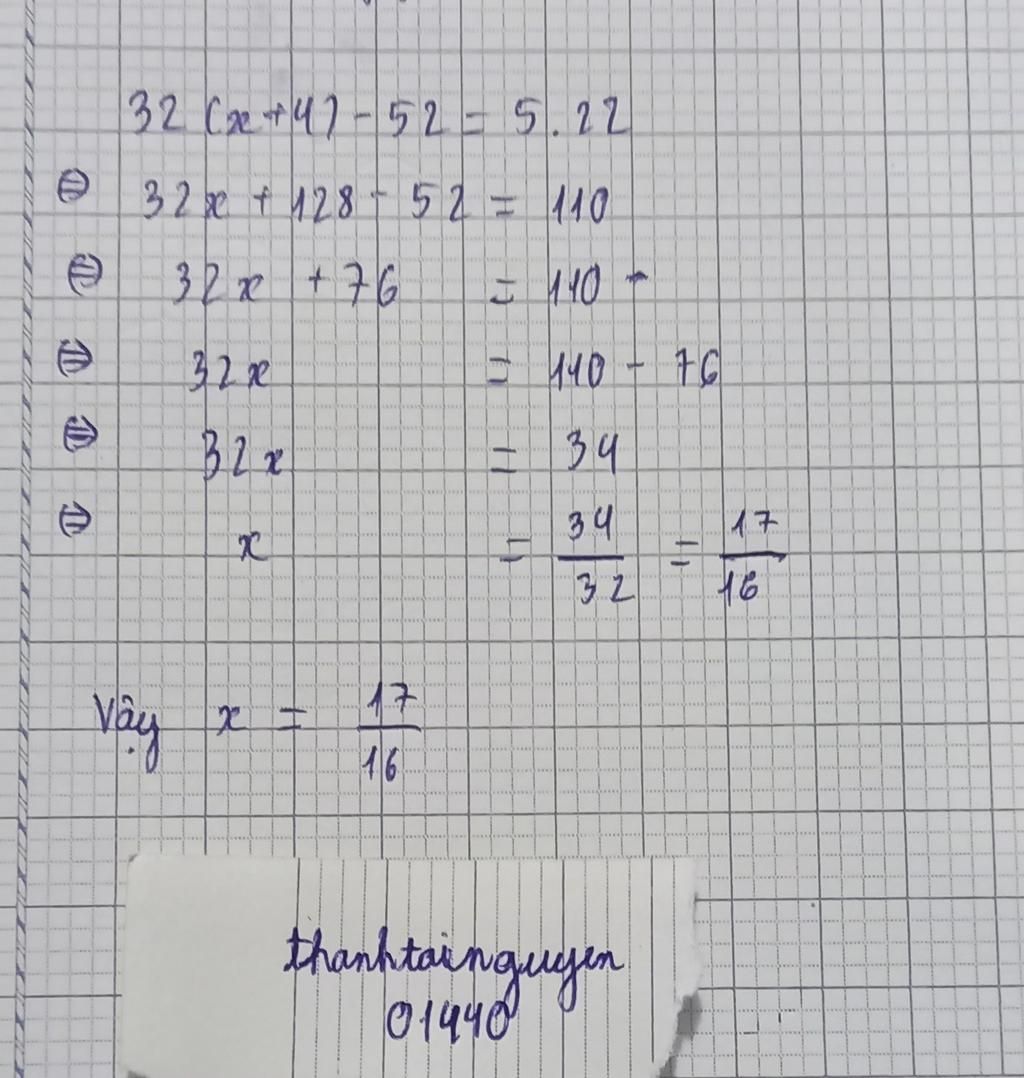 32 (x+4) - 52 = 5.22
⇔ 32x + 128 - 52 = 110
⇔ 32x + 76 = 110 -
⇔ 32x = 110 - 76
⇔ 32x = 34
⇔ x = 34/32 = 17/16
Vậy x = 17/16
thanhtainguyen
01440